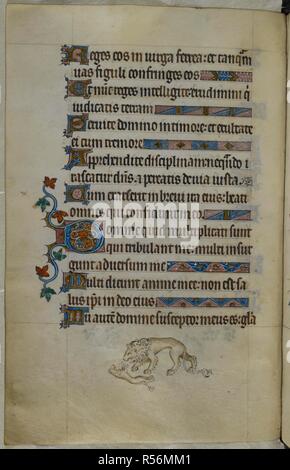 Reges eos in virga ferrea: et tanq̃m
vas figuli confringes eos
Et nuc reges intelligite: erudimini q̃
iudicatis terram
Servite domino in timore: et exultate
ei cum tremore
Apprehendite disciplinam: nequãdo i
rascatur dñs: et pereatis de via iusta
Cum exarserit in brevi ira eius: beati
omnes qui confidunt in eo
Domine quid multiplicati sunt
qui tribulant me: multi insur
gunt adversum me
Multi dicunt anime mee: non est sa
lus ipi in deo eius
Tu autem domine susceptor meus es: gla
alamy
Image ID: R56MM1
www.alamy.com